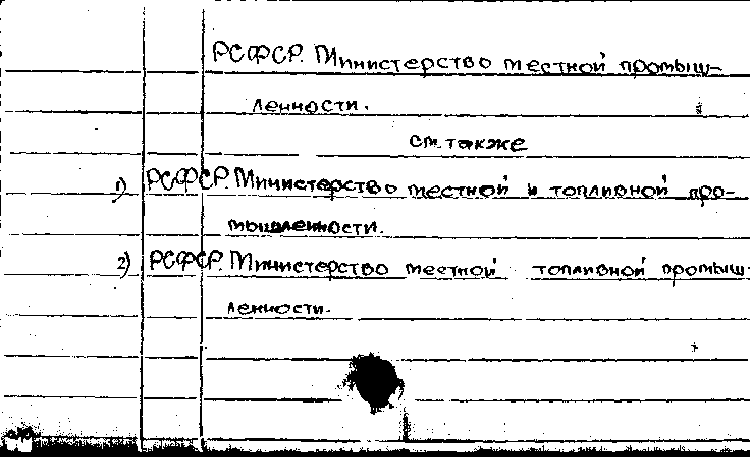 РСФСР. Министерство местной промыш-
ленности.
см. также
1) РСФСР. Министерство местной и топливной про-
мышленности.
2) РСФСР. Министерство местной топливной промыш-
ленности.